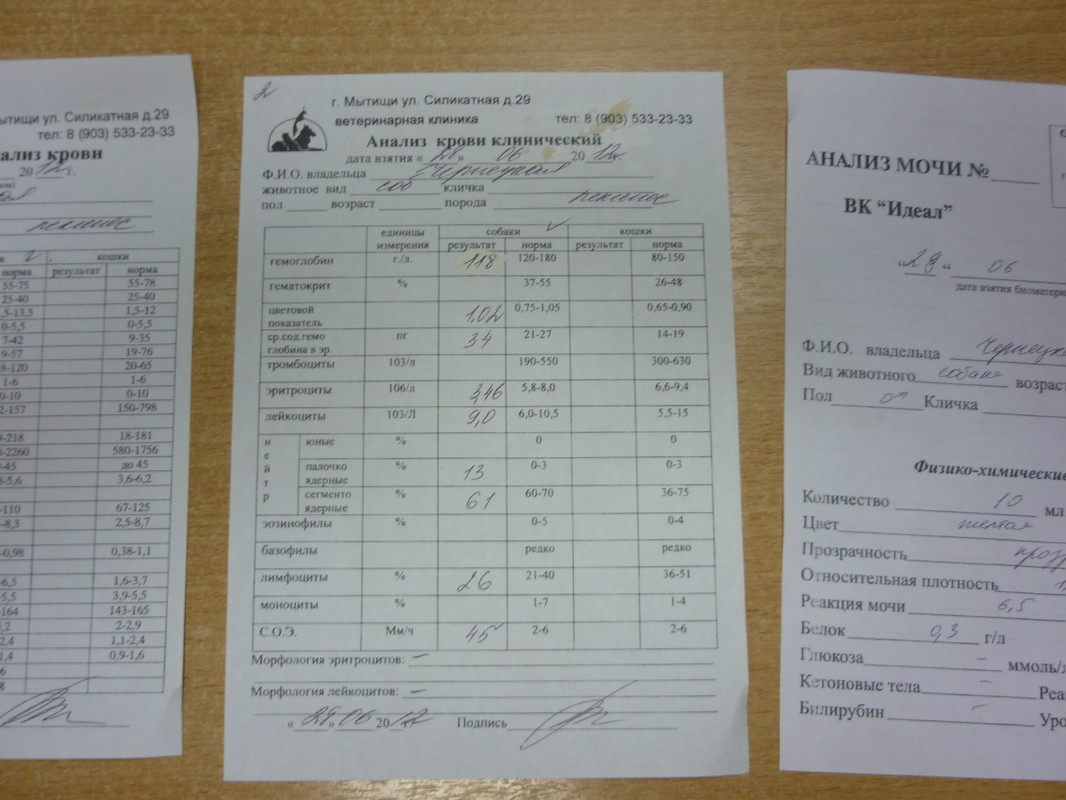 ытищи ул. Силикатная д.29
тел: 8 (903) 533-23-33
ализ крови
20 12 г.
пекинес
кошки
норма результат норма
55-75 55-78
25-40 25-40
,5-13,5 1,5-12
0-5,5 0-5,5
7-42 9-35
9-57 19-76
8-120 20-65
1-6 1-6
0-10 0-10
2-157 150-798
-218 18-181
-2260 580-1756
-45 до 45
-5,6 3,6-6,2
-110 67-125
-8,3 2,5-8,7
-0,98 0,38-1,1
-6,5 1,6-3,7
-5,5 3,9-5,5
-164 143-165
,2 2-2,9
-2,4 1,1-2,4
1,4 0,9-1,6
2
г. Мытищи ул. Силикатная д.29
ветеринарная клиника тел: 8 (903) 533-23-33
Анализ крови клинический
дата взятия « 28 » 06 20 12г.
Ф.И.О. владельца Чернецкая
животное вид соб кличка
пол возраст порода пекинес
единицы измерения собаки кошки
результат норма результат норма
гемоглобин г./л. 118 120-180 80-150
гематокрит % 37-55 26-48
цветовой показатель 1,02 0,75-1,05 0,65-0,90
ср.сод.гемо глобина в эр. пг 34 21-27 14-19
тромбоциты 103/л 190-550 300-630
эритроциты 106/л 3,46 5,8-8,0 6,6-9,4
лейкоциты 103/Л 9,0 6,0-10,5 5,5-15
нейтр юные % 0 0
палочко ядерные % 13 0-3 0-3
сегменто ядерные % 61 60-70 36-75
эозинофилы % 0-5 0-4
базофилы редко редко
лимфоциты % 26 21-40 36-51
моноциты % 1-7 1-4
С.О.Э. Мм/ч 45 2-6 2-6
Морфология эритроцитов: –
Морфология лейкоцитов: –
« 28 » 06 20 12 г Подпись
АНАЛИЗ МОЧИ №
ВК “Идеал”
„28“ 06
дата взятия биоматер
Ф.И.О. владельца Чернецк
Вид животного собака возраст
Пол Кличка
Физико-химические
Количество 10 мл
Цвет желтая
Прозрачность прозр
Относительная плотность
Реакция мочи 6,5
Белок 0,3 г/л
Глюкоза – ммоль/л
Кетоновые тела – Реа
Билирубин – Уро